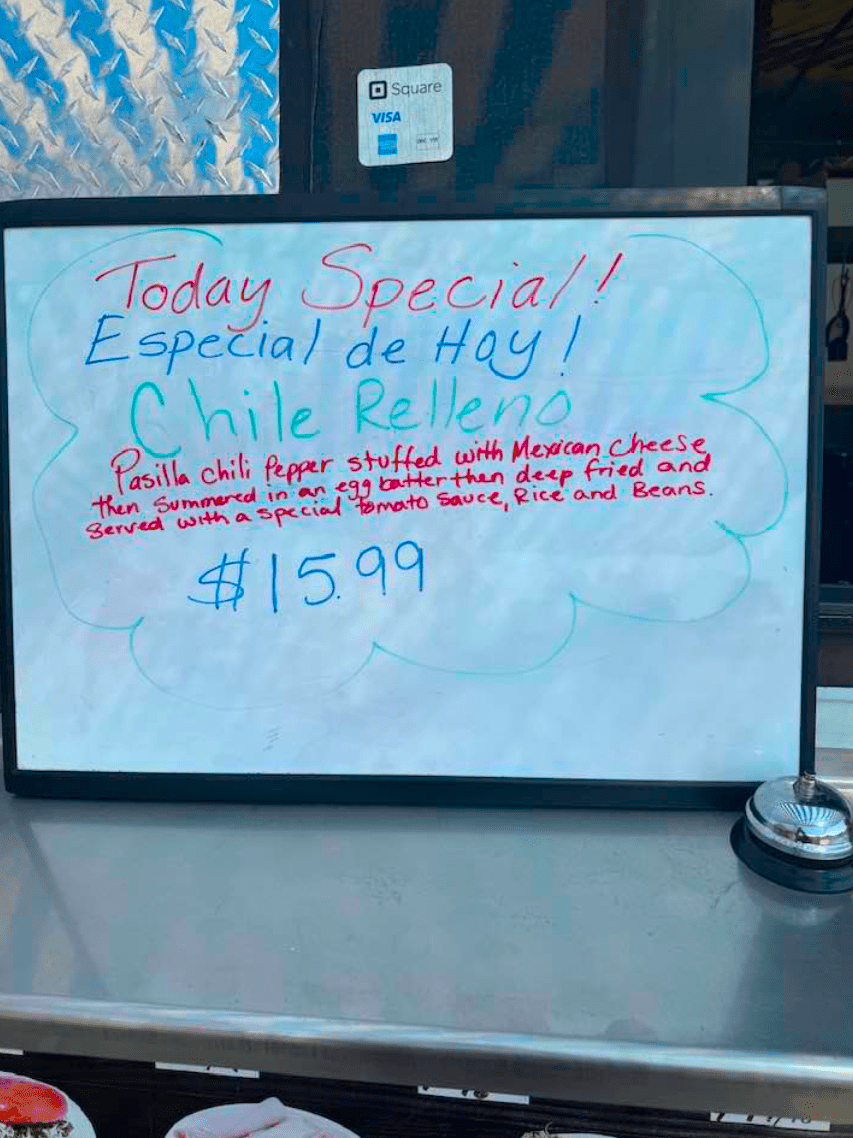 Square
VISA
Today Special!
Especial de Hoy!
Chile Relleno
Pasilla chili Pepper stuffed with Mexican cheese
then Summered in an egg batter then deep fried and
Served with a special tomato sauce, Rice and Beans.
$15.99